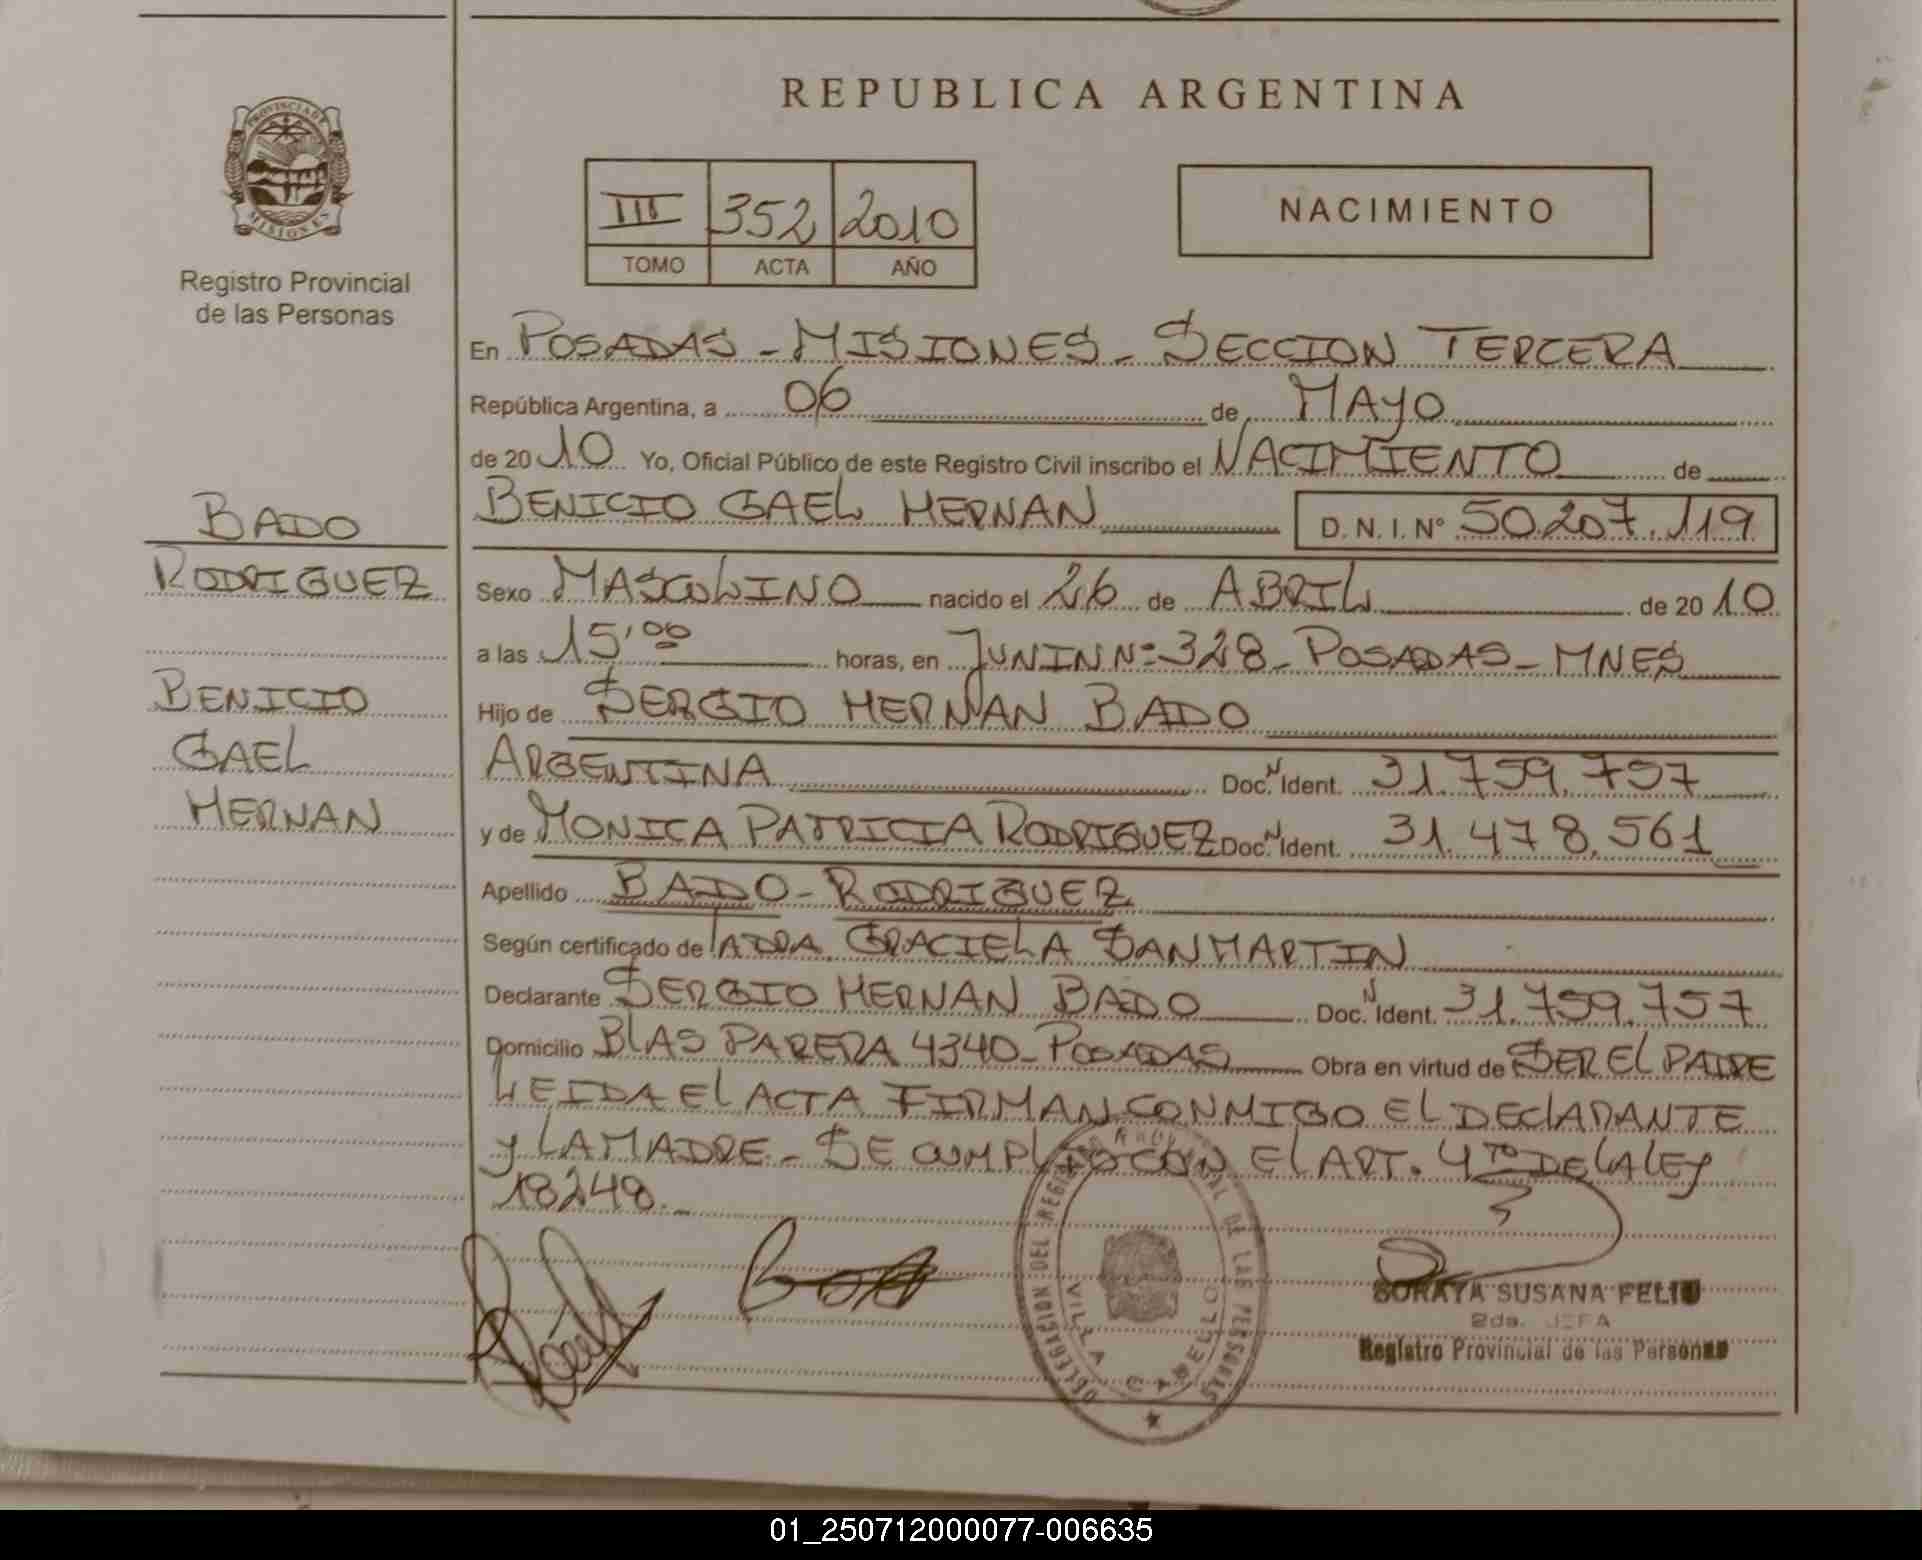 REPUBLICA ARGENTINA
PROVINCIA DE MISIONES
Registro Provincial
de las Personas
III 352 2010
TOMO ACTA AÑO
NACIMIENTO
En POSADAS - MISIONES - SECCION TERCERA
República Argentina, a 06 de MAYO
de 2010 Yo, Oficial Público de este Registro Civil inscribo el NACIMIENTO de
BENICIO GAEL HERNAN D. N. I. Nº 50.207.119
BADO
RODRIGUEZ
BENICIO
GAEL
HERNAN
Sexo MASCULINO nacido el 26 de ABRIL de 2010
a las 15,00 horas, en JUNIN Nº 328 - POSADAS - MNES
Hijo de SERGIO HERNAN BADO
ARGENTINA Doc. N Ident. 31.759.757
y de MONICA PATRICIA RODRIGUEZ Doc. N Ident. 31.478.561
Apellido BADO - RODRIGUEZ
Según certificado de LA DRA. GRACIELA SANMARTIN
Declarante SERGIO HERNAN BADO Doc. N Ident. 31.759.757
Domicilio BLAS PARERA 4340 - POSADAS Obra en virtud de SER EL PADRE
LEIDA EL ACTA FIRMAN CONMIGO EL DECLARANTE
Y LA MADRE - SE CUMPLIO CON EL ART. 4TO DE LA LEY
18248.-
DELEGACION DEL REGISTRO PROVINCIAL DE LAS PERSONAS
VILLA CABELLO
SORAYA SUSANA FELIU
2da. JEFA
Registro Provincial de las Personas
01_250712000077-006635